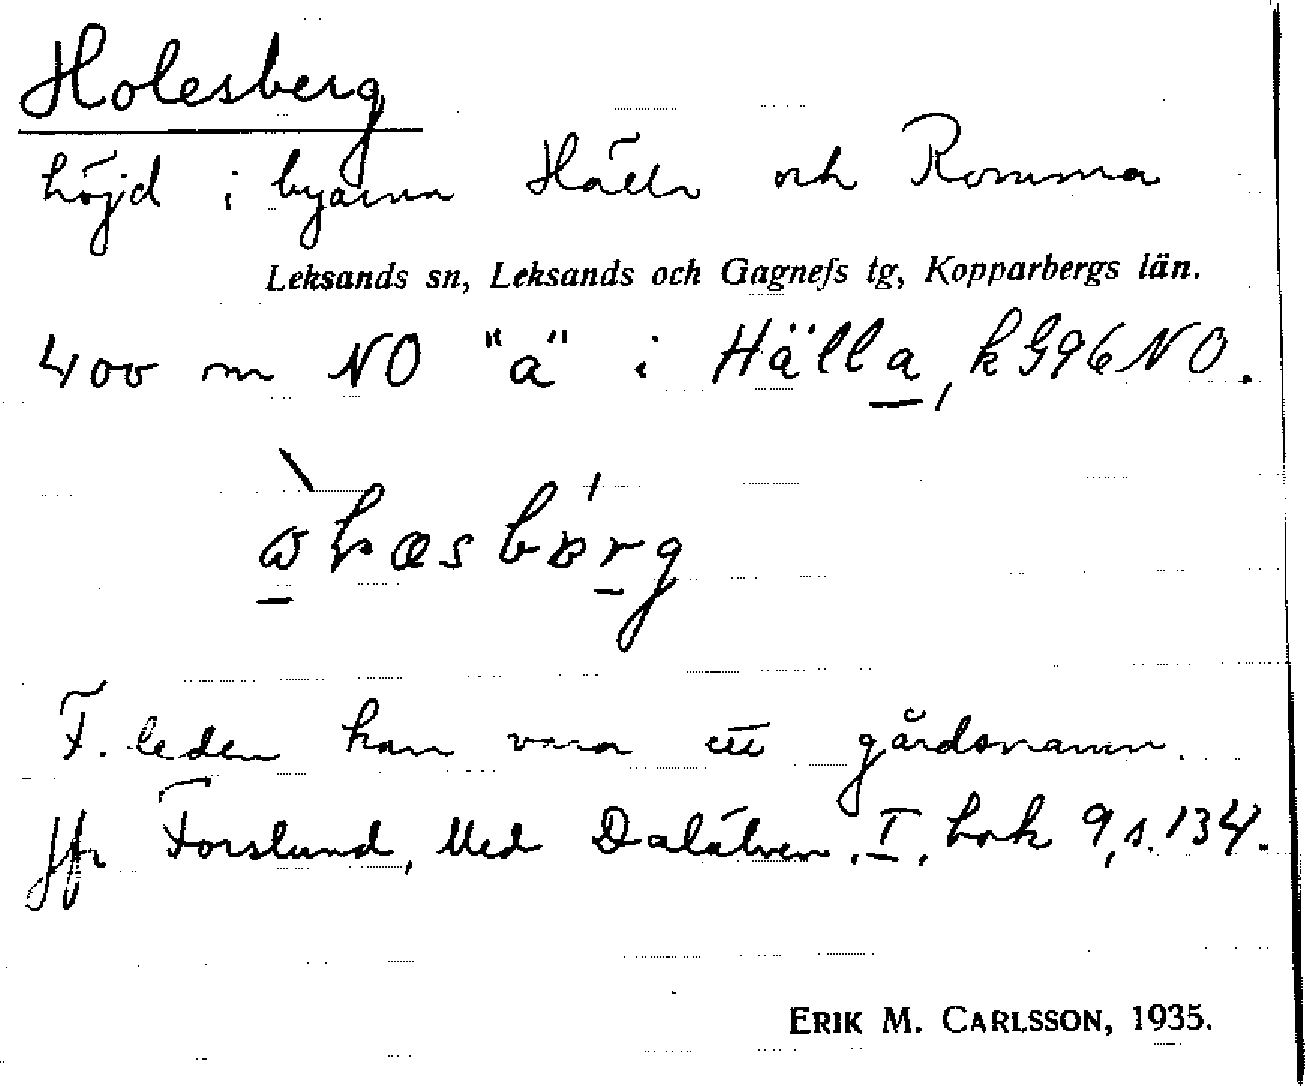 Holesberg
höjd i byarna Hälla och Romma
Leksands sn, Leksands och Gagnefs tg, Kopparbergs län.
400 m NO "a" i Hälla, k G96 NO.
F. leden kan vara ett gårdsnamn.
Jfr Forslund, Med Dalälven, I, bok 9, s. 134.
ERIK M. CARLSSON, 1935.